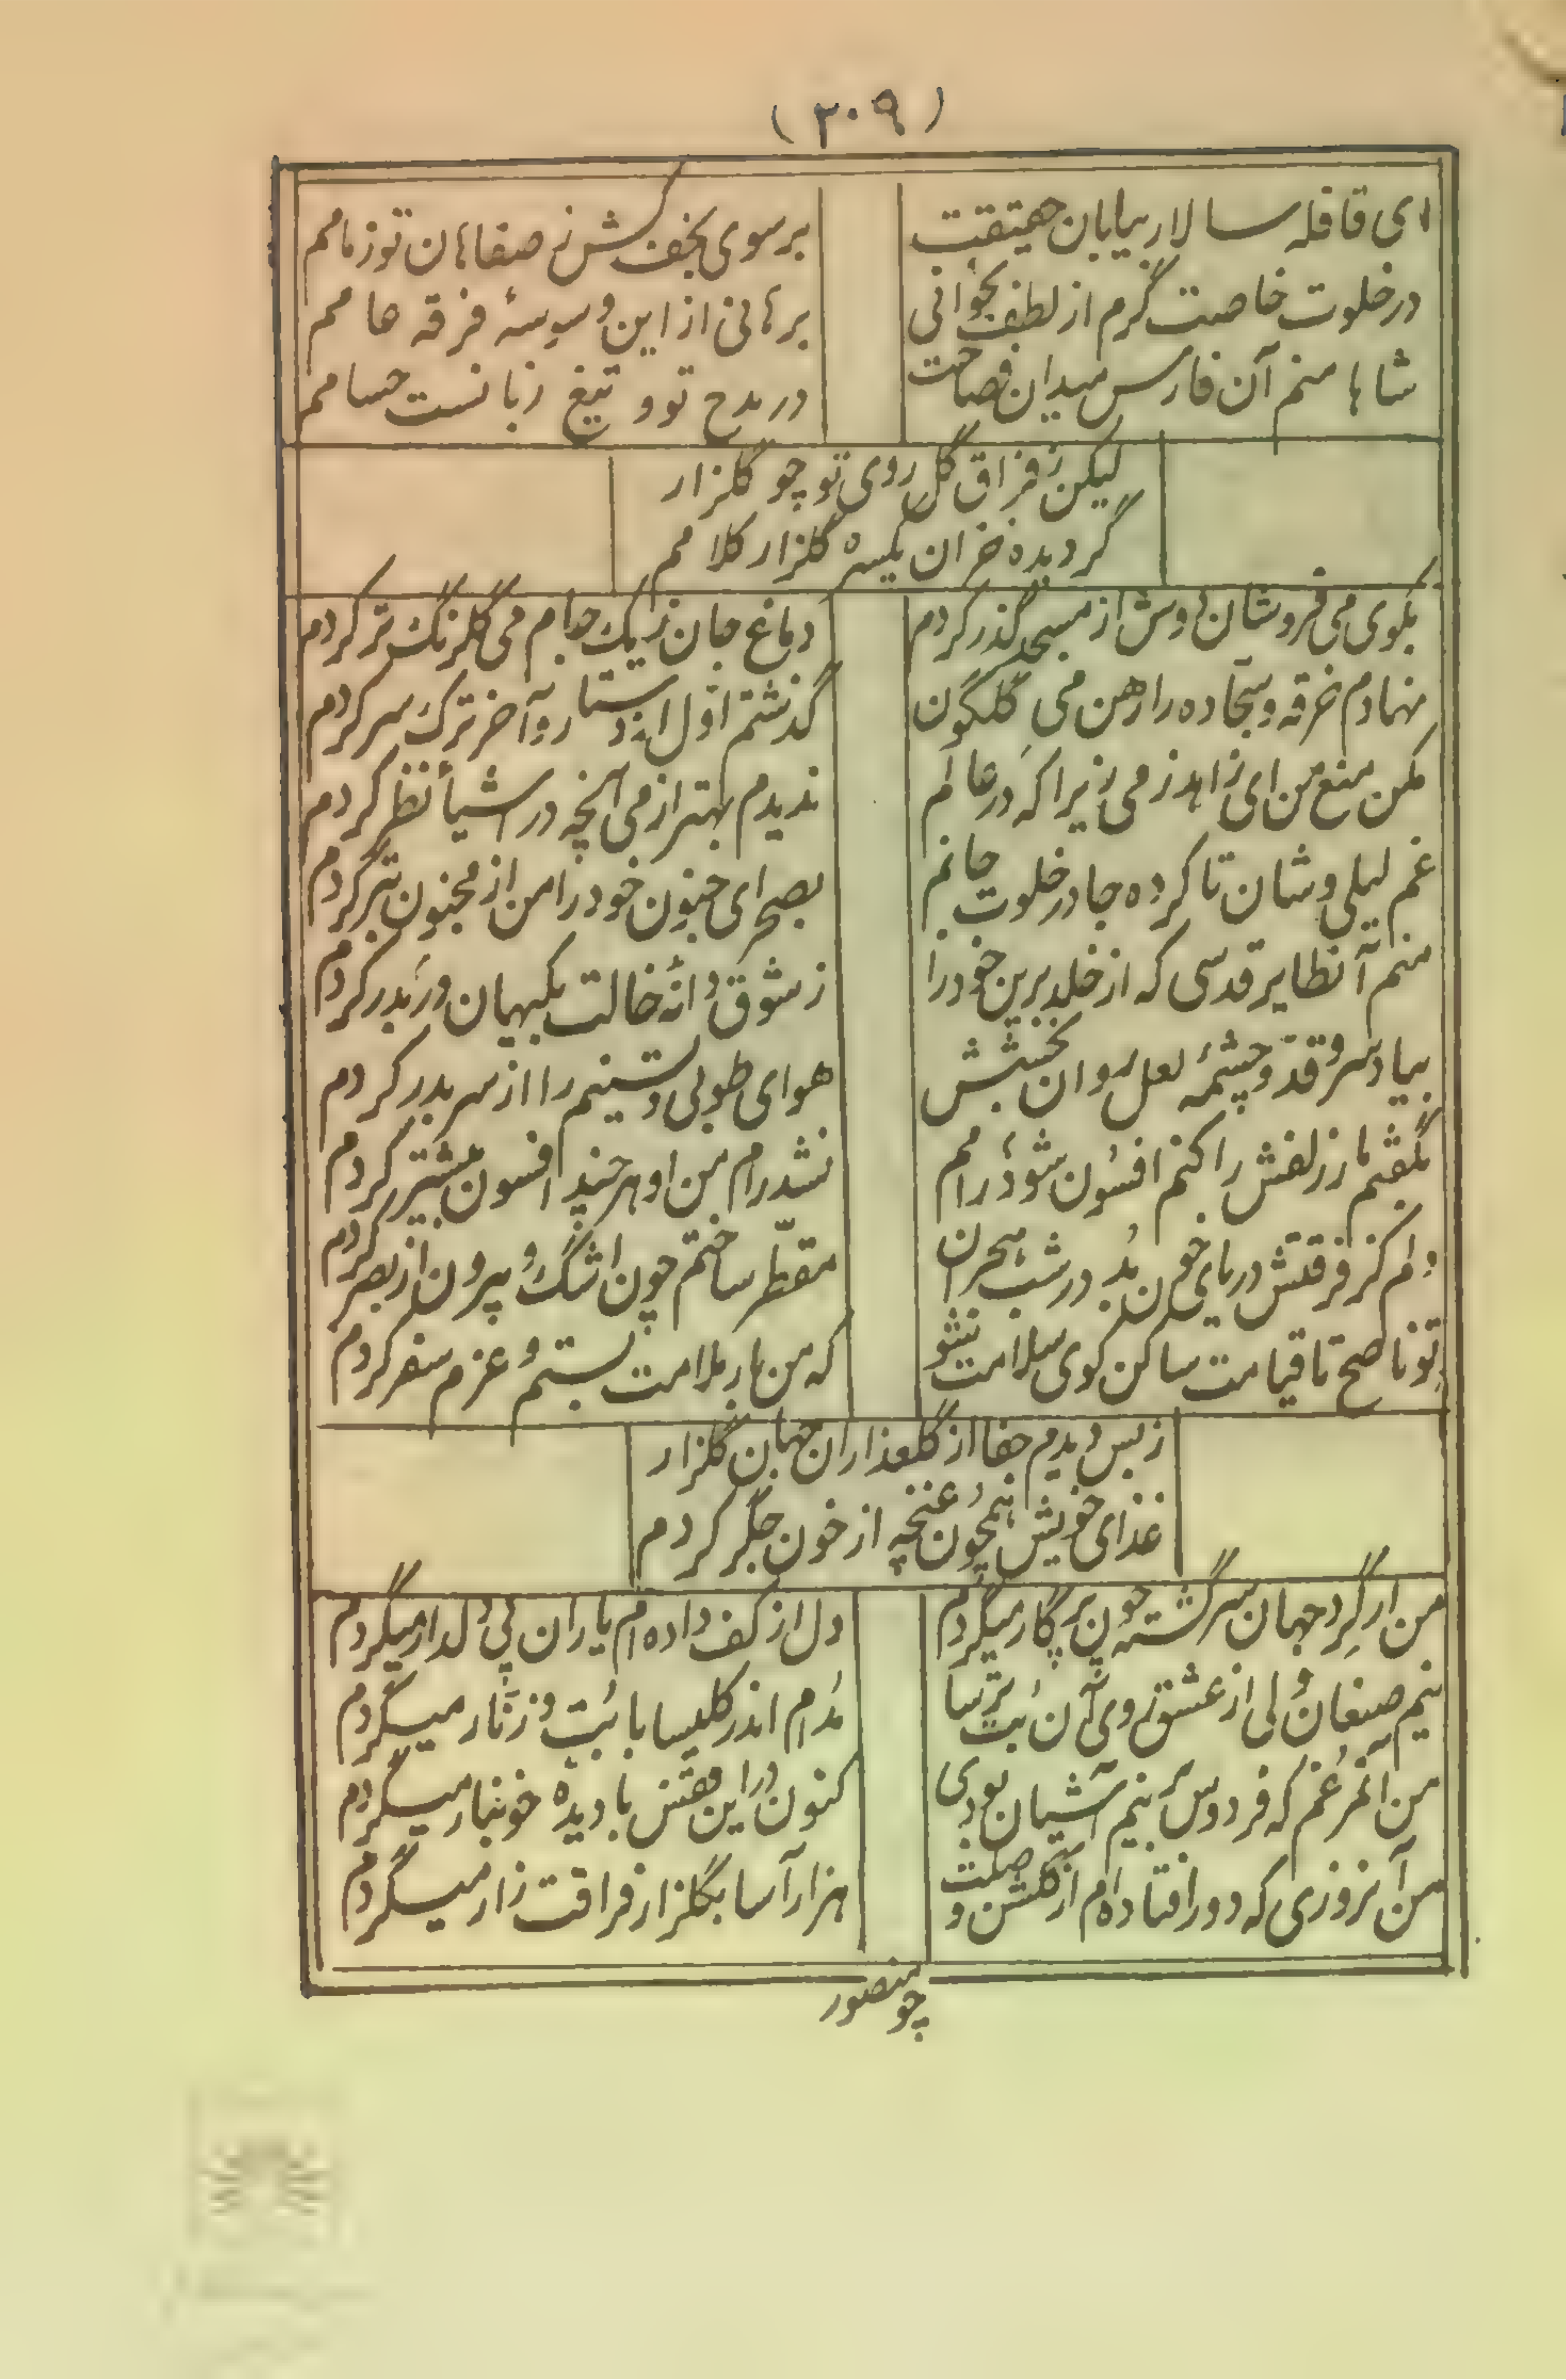 (۳۰۹)
ای قافله سالار بیابان حقیقت
بر سوی نجف کش ز صفاهان تو زمامم
در خلوت خاصت گرم از لطف بخوانی
برهانی از این وسوسهٔ فرقه عامم
شاها منم آن فارس میدان فصاحت
در مدح تو و تیغ زبانست حسامم
لیکن ز فراق گل روی تو چو گلزار
گردیده خزان یکسره گلزار کلامم
بکوی می فروشان دوش از مسجد گذر کردم
دماغ جان ز یک جام می گلرنگ تر کردم
نهادم خرقه و سجاده را رهن می گلگون
گذشتم اول از دستار و آخر ترک سر کردم
مکن منع من ای زاهد ز می زیرا که در عالم
ندیدم بهتر از می آنچه در اشیأ نظر کردم
غم لیلی وشان تا کرده جا در خلوت جانم
بصحرای جنون خود را من از مجنون بتر کردم
منم آنطایر قدسی که از خلد برین خود را
ز شوق دانهٔ خالت بکیهان در بدر کردم
بیاد سرو قد و چشمهٔ لعل روان بخشش
هوای طوبی و تسنیم را از سر بدر کردم
بگفتم مار زلفش را کنم افسون شود رامم
نشد رام من او هر چند افسون بیشتر کردم
دلم کز فرقتش دریای خون بُد در شب هجران
مقطّر ساختم چون اشک و بیرون از بصر کردم
تو ناصح تا قیامت ساکن کوی سلامت شو
که من بار ملامت بستم و عزم سفر کردم
ز بس دیدم جفا از گلعذاران جهان گلزار
غذای خویش همچون غنچه از خون جگر کردم
من ار گِرد جهان سرگشته چون پرگار میگردم
دل از کف داده‌ام یاران پی دلدار میگردم
نیم صنعان ولی از عشق روی آن بُت ترسا
مُدام اندر کلیسا با بُت و زنّار میگردم
من آنمرغم که فردوس برینم آشیان بودی
کنون در این قفس با دیده خونبار میگردم
من آنروزی که دور افتاده‌ام از گلشن وصلت
هزار آسا بگلزار فراقت زار میگردم
چو منصور